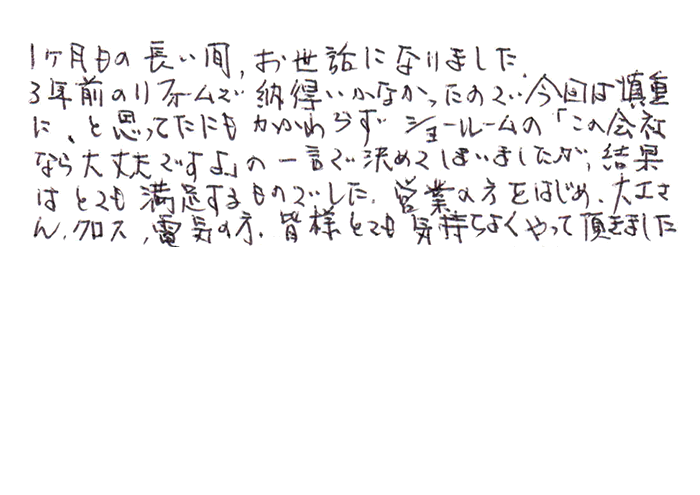 1ヶ月もの長い間、お世話になりました。
3年前のリフォームで納得いかなかったので今回は慎重
に、と思ってたにもかかわらず ショールームの「この会社
なら大丈夫ですよ」の一言で決めてしまいましたが、結果
はとても満足するものでした。営業の方をはじめ、大工さ
ん、クロス、電気の方、皆様とても気持ちよくやって頂きました